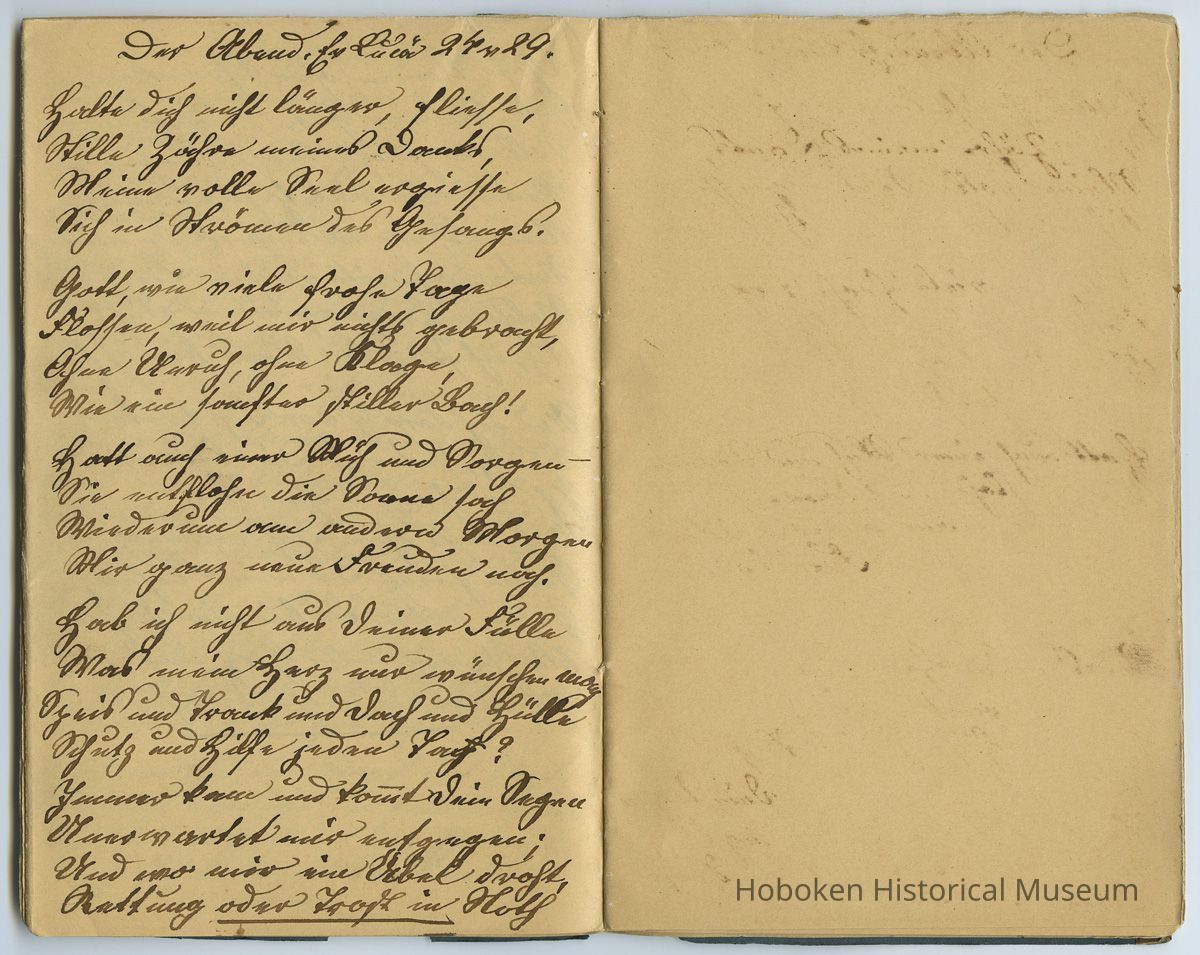 Der Abend. Ev Lucä 24 v 29.
Halte dich nicht länger, fliesse,
Stille Zähre meines Danks,
Meine volle Seel ergiesse
Sich in Strömen des Gesangs.
Gott, wie viele frohe Tage
Flossen, weil mir nichts gebracht,
Ohne Unruh, ohne Klage,
Wie ein sanfter stiller Bach!
Hatt auch einer Müh und Sorgen –
Sie entflohn die Sonne sah
Wiederum am andern Morgen
Mir ganz neue Freuden nah.
Hab ich nicht aus deiner Fülle
Was mein Herz nur wünschen mag
Speis und Trank und Dach und Hülle
Schutz und Hilfe jeden Tag?
Immer kam und kom̅t Dein Segen
Unerwartet mir entgegen;
Und wo mir ein Übel droht,
Rettung oder Trost in Noth
Hoboken Historical Museum